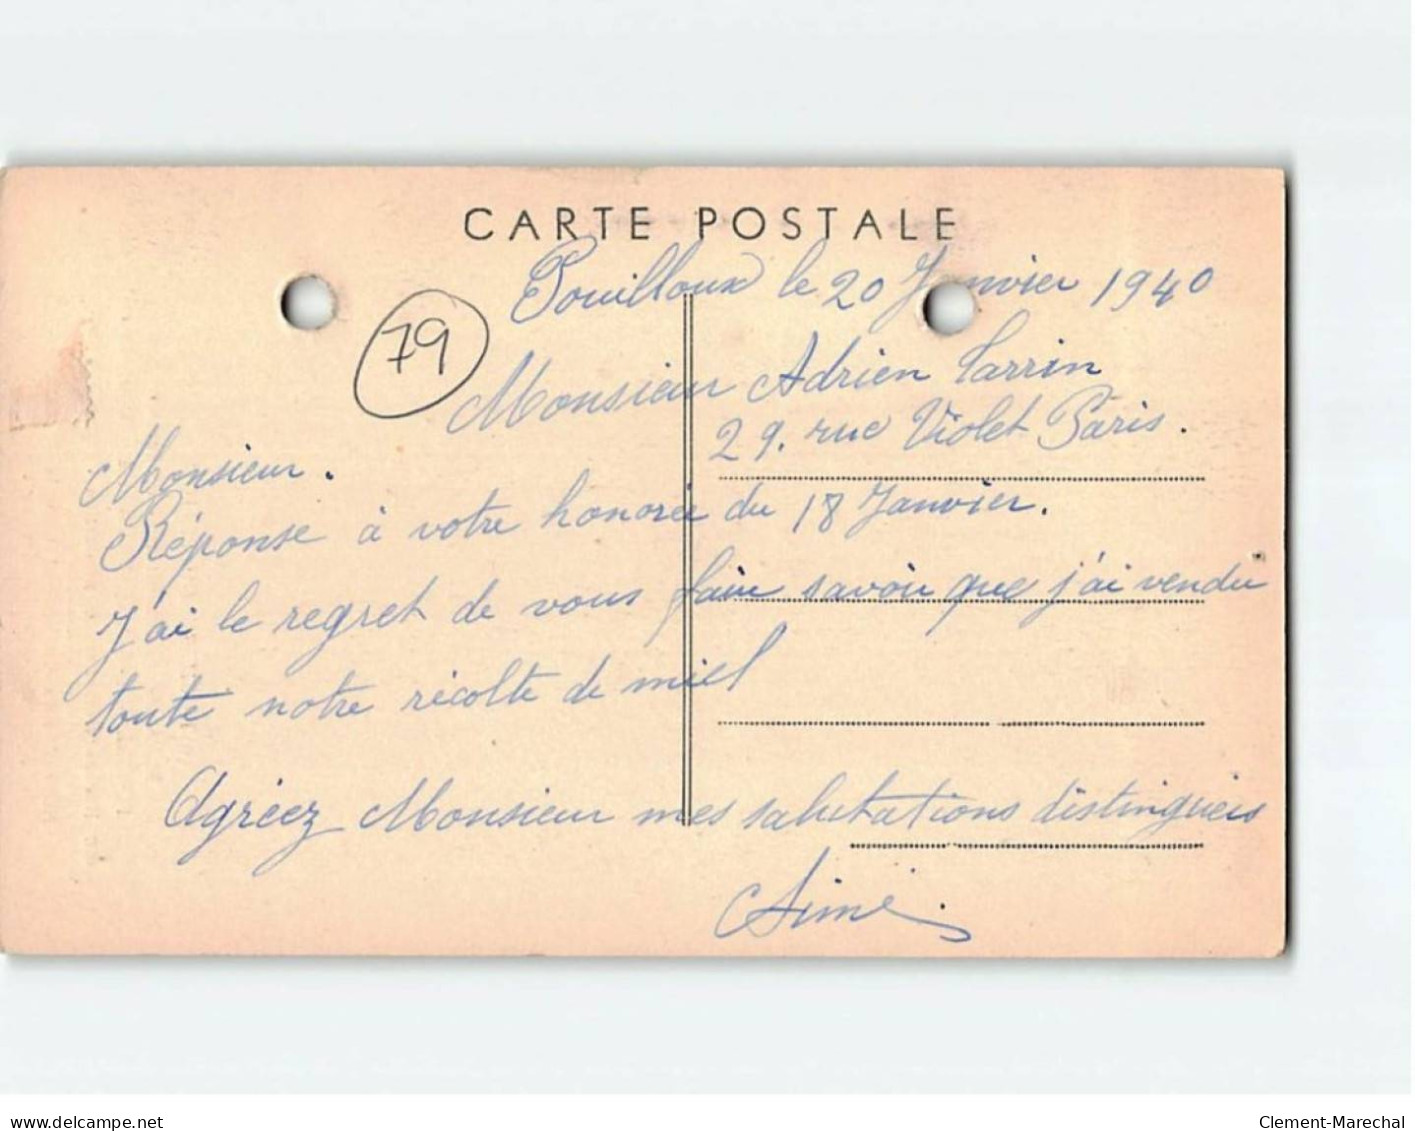 CARTE POSTALE
Pouilloux le 20 Janvier 1940
79
Monsieur Adrien Larrin
29. rue Violet Paris.
Monsieur.
Réponse à votre honorée du 18 Janvier.
J'ai le regret de vous faire savoir que j'ai vendu
toute notre récolte de miel
Agréez Monsieur mes salutations distingueés
Aimé.
delcampe.net
Clement-Marechal